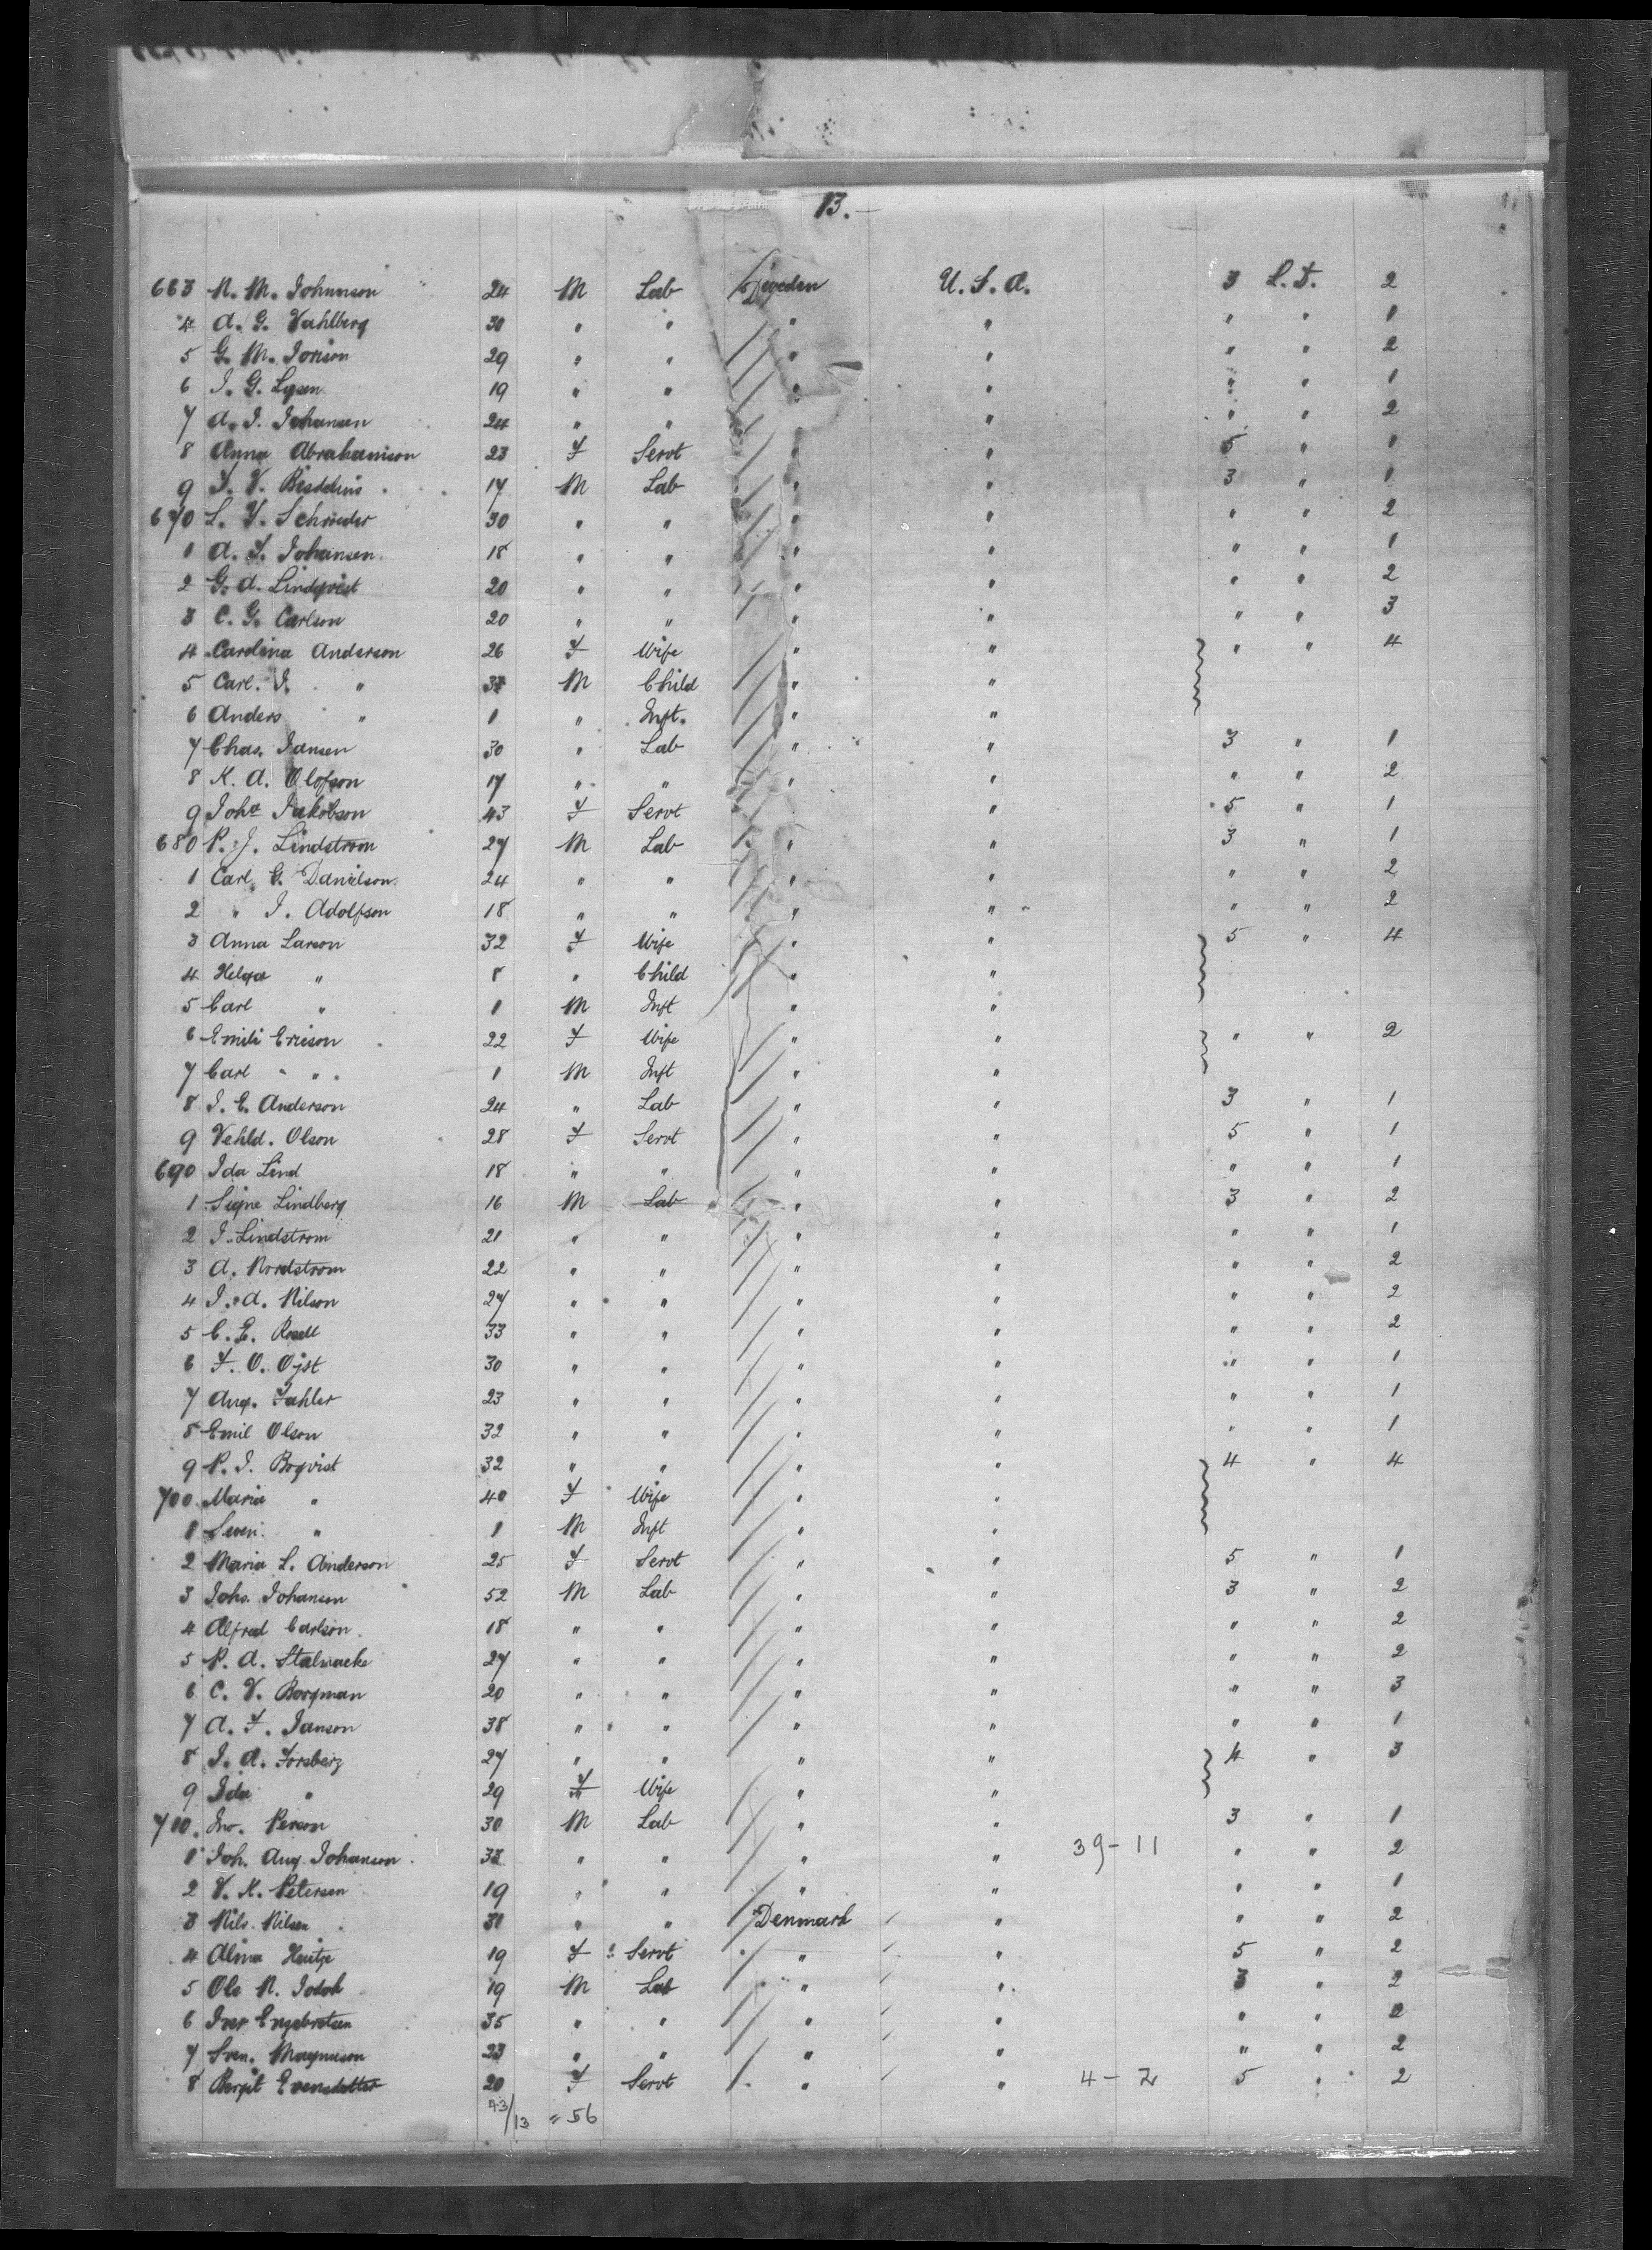 13.
663 N. M. Johnnson 24 M Lab Sweden U. S. A. 3 L. D. 2
4 A. G. Vahlberg 30 " " " " " " 1
5 G. M. Jonson 29 " " " " " " 2
6 J. G. Lysen 19 " " " " " " 1
7 A. J. Johansen 24 " " " " " " 2
8 Anna Abrahamson 23 F Servt " " 5 " 1
9 F. V. 17 M Lab " " 3 " 1
670 L. V. Schrieder 30 " " " " " " 2
1 A. F. Johansen 18 " " " " " " 1
2 G. A. Lindqvist 20 " " " " " " 2
3 C. G. Carlson 20 " " " " " " 3
4 Carolina Anderson 26 F Wife " " " " 4
5 Carl. J. " M Child " "
6 Anders " 1 " Inft. " "
7 Chas. Jansen 30 " Lab " " 3 " 1
8 K. A. Olofson 17 " " " " " " 2
9 Joha Jakobson 43 F Servt " 5 " 1
680 P. J. Lindstrom 27 M Lab " " 3 " 1
1 Carl G. Danielson 24 " " " " " " 2
2 " J. Adolfson 18 " " " " " " 2
3 Anna Larson 32 F Wife " " 5 " 4
4 Helga " 8 " Child " "
5 Carl " 1 M Inft " "
6 Emili Ericson 22 F Wife " " " " 2
7 Carl " 1 M Inft " "
8 J. E. Anderson 24 " Lab " " 3 " 1
9 Vehld. Olson 28 F Servt " " 5 " 1
690 Ida Lind 18 " " " " " " 1
1 Signe Lindberg 16 M Lab " " 3 " 2
2 J. Lindstrom 21 " " " " " " 1
3 A. Nordstrom 22 " " " " " " 2
4 J. A. Nilson 27 " " " " " " 2
5 C. E. Rosell 33 " " " " " " 2
6 F. O. Ojst 30 " " " " " " 1
7 Aug. Fahler 23 " " " " " " 1
8 Emil Olson 32 " " " " " " 1
9 P. J. Boqvist 32 " " " " 4 " 4
700 Maria " 40 F Wife " "
1 Sven " 1 M Inft " "
2 Maria L. Anderson 25 F Servt " " 5 " 1
3 Johs. Johanson 52 M Lab " " 3 " 2
4 Alfred Carlson 18 " " " " " " 2
5 P. A. Stalnacke 27 " " " " " " 2
6 C. V. Borgman 20 " " " " " " 3
7 A. F. Janson 38 " " " " " " 1
8 J. A. Forsberg 27 " " " " 4 " 3
9 Ida " 29 F Wife " "
710. Jno. Person 30 M Lab " " 3 " 1
1 Joh. Aug. Johanson " " " " 39-11 " " 2
2 V. K. Petersen 19 " " " " " " 1
3 Nils. Nilsen 31 " " Denmark " " " 2
4 Alma 19 F Servt " " 5 " 2
5 Ole N. 19 M Lab " " 3 " 2
6 Iver Engebretsen 35 " " " " " " 2
7 Sven. Magnuson 23 " " " " " " 2
8 Bergit Evensdatter 20 F Servt " " 4-2 5 " 2
43/13 = 56